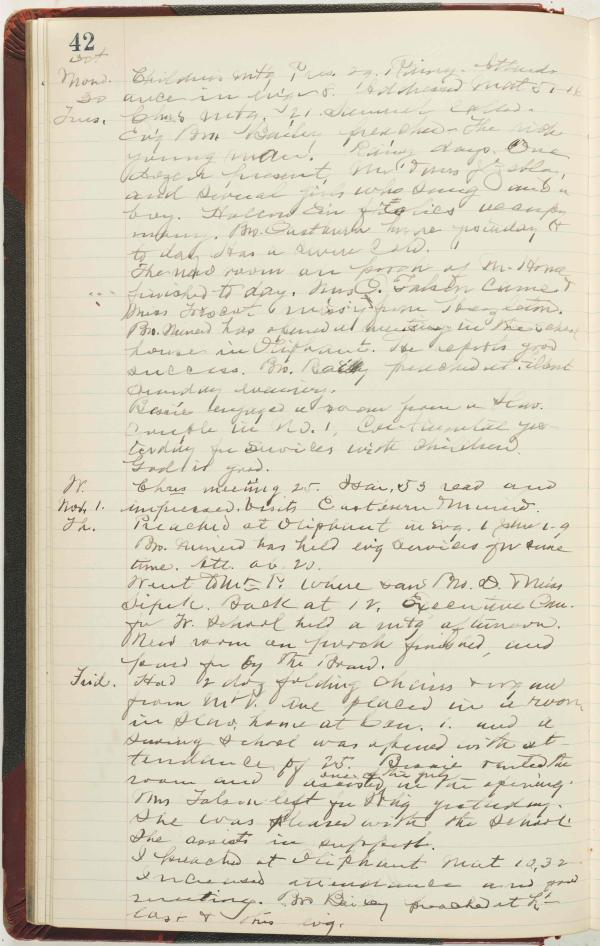 42
Oct
Mond. Children's mtg Pres. 29. Rainy. Attend-
30 ance in evg 8. Addressed Mat 5 1-16
Tues. Chas mtg. 21. Several calls.
Evg Bro Bailey preached - The rich
young man. Rainy days. One
present, Mr.
and several girls who sang and a
boy. Hallow Een frolics occupy
many. Bro. Eastburn here yesterday &
to day. Has a severe cold.
The new room on porch of M. Home
finished to day. Mrs C. Falson came &
Miss from Hazleton.
Bro. Minerd has opened a meeting in the school
house in Oliphant. He reports good
success. Bro. Bailey preached at
Sunday evening.
Bessie engaged a room from a Slav.
couple in No. 1, Continental yes-
terday for services with children.
God is good.
W. Chas meeting 25. Isai, 53 read and
Nov. 1. impressed. Visits Eastburn Minerd.
Th. Preached at Oliphant in evg. 1 John 1-9
Bro. Minerd has held evg services for some
time. Att. ab. 20.
Went to Mt. P. where saw Bro. D. Miss
Sipek. Back at 12. Executive Com.
for Tr. School held a mtg afternoon.
New room on porch finished, and
paid for by the Board.
Frid. Had 2 doz folding chairs & organ
from Mt P. are placed in a room
in Slav, home at Con. 1. and a
Sewing School was opened with at
tendance of 25. Bessie rented the
some of the girls
room and assisted in the opening.
Mrs Falson left for yesterday.
She was pleased with the School
She assists in support.
I preached at Oliphant Mat 10,32
Increased attendance and good
meeting. Bro Bailey preached at
last & this evg.